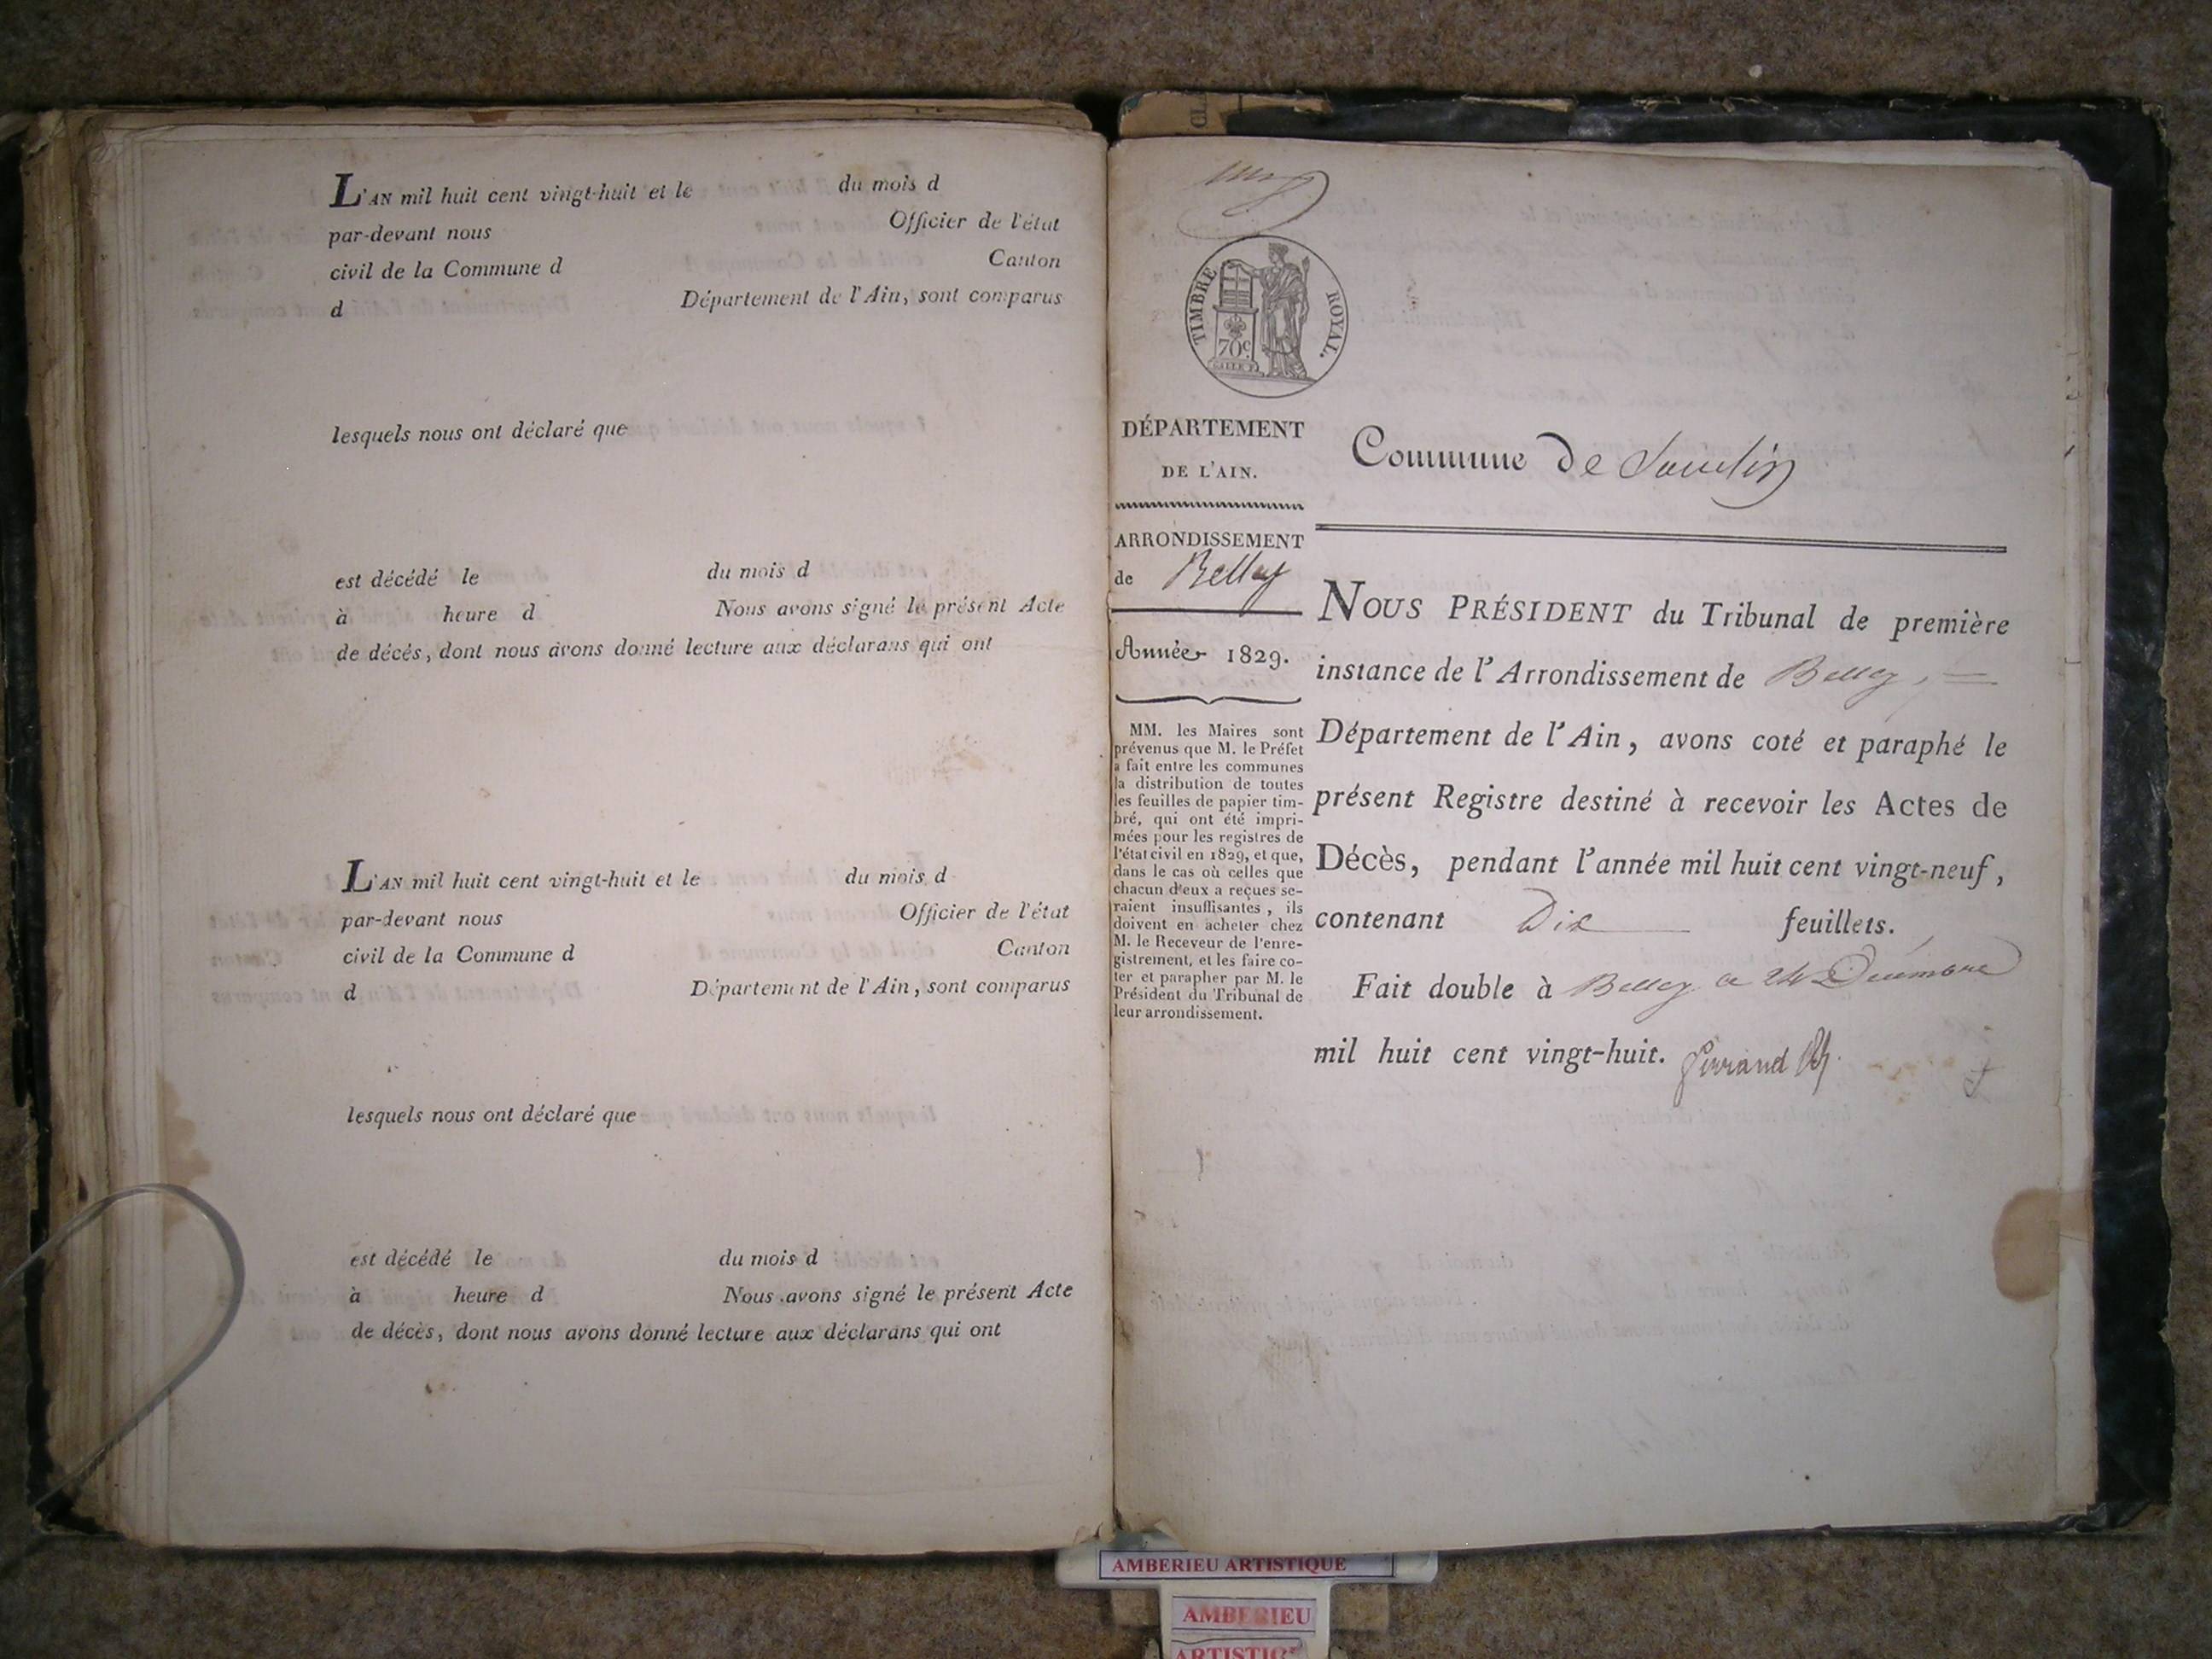 L'AN mil huit cent vingt-huit et le du mois d
par-devant nous Officier de l'état
civil de la Commune d Canton
d Département de l'Ain, sont comparus
lesquels nous ont déclaré que
est décédé le du mois d
à heure d Nous avons signé le présent Acte
de décés, dont nous avons donné lecture aux déclarans qui ont
L'AN mil huit cent vingt-huit et le du mois d
par-devant nous Officier de l'état
civil de la Commune d Canton
d Département de l'Ain, sont comparus
lesquels nous ont déclaré que
est décédé le du mois d
à heure d Nous avons signé le présent Acte
de décès, dont nous avons donné lecture aux déclarans qui ont
TIMBRE ROYAL.
70c.
DÉPARTEMENT
DE L'AIN.
ARRONDISSEMENT
de Belley
Année 1829.
MM. les Maires sont
prévenus que M. le Préfet
a fait entre les communes
la distribution de toutes
les feuilles de papier tim-
bré, qui ont été impri-
mées pour les registres de
l'état civil en 1829, et que,
dans le cas où celles que
chacun d'eux a reçues se-
raient insuffisantes, ils
doivent en acheter chez
M. le Receveur de l'enre-
gistrement, et les faire co-
ter et parapher par M. le
Président du Tribunal de
leur arrondissement.
Commune de
NOUS PRÉSIDENT du Tribunal de première
instance de l'Arrondissement de Belley,
Département de l'Ain, avons coté et paraphé le
présent Registre destiné à recevoir les Actes de
Décès, pendant l'année mil huit cent vingt-neuf,
contenant Dix feuillets.
Fait double à Belley ce 24 Décembre
mil huit cent vingt-huit.
AMBERIEU ARTISTIQUE
AMBERIEU
ARTISTIQ